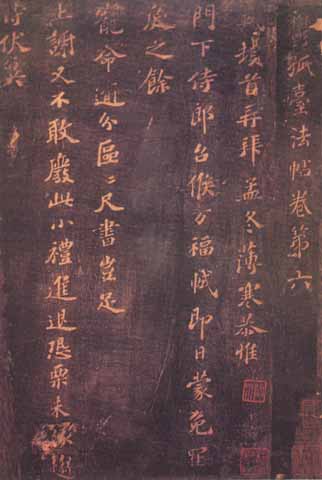 孤臺法帖卷第六
頓首再拜孟冬薄寒恭惟
門下侍郎台候万福軾即日蒙免罪
戾之餘
寵命逾分區〻尺書豈足
上謝又不敢廢此小禮進退恐栗未緣趨
侍伏冀